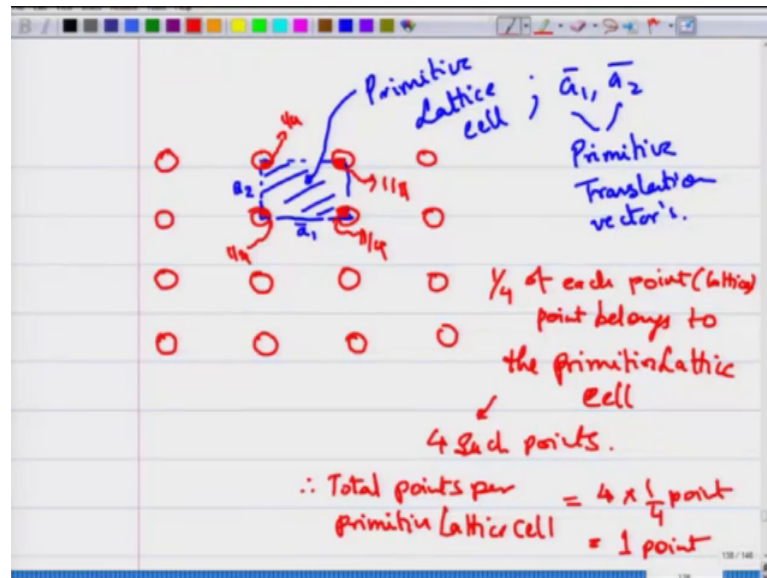 Primitive
Lattice
cell
; a̅1, a̅2
Primitive
Translation
vector's.
1/4
1/4
a2
a̅1
1/4
1/4
1/4 of each point (lattice)
point belongs to
the primitive Lattice
cell
4 such points.
∴ Total points per
primitive Lattice cell
= 4 x 1/4 point
= 1 point
138 / 146